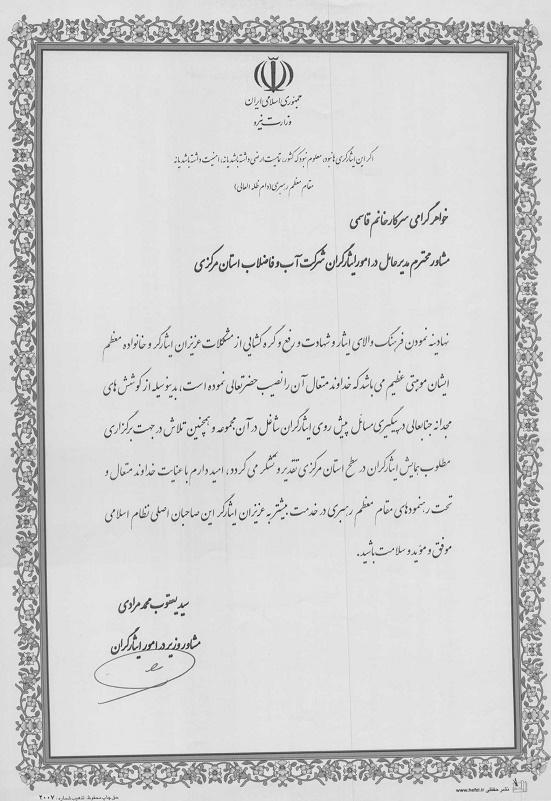 جمهوری اسلامی ایران
وزارت نیرو
اگر این ایثارگری ها نبود، معلوم نبود که کشور، تمامیت ارضی داشته باشد یا نه، امنیت داشته باشد یا نه
مقام معظم رهبری (دام ظله العالی)
خواهر گرامی سرکار خانم قاسمی
مشاور محترم مدیرعامل در امور ایثارگران شرکت آب و فاضلاب استان مرکزی
نهادینه نمودن فرهنگ والای ایثار و شهادت و رفع و گره گشایی از مشکلات عزیزان ایثارگر و خانواده معظم
ایشان موهبتی عظیم می باشد که خداوند متعال آن را نصیب حضرتعالی نموده است، بدینوسیله از کوشش های
مجدانه جنابعالی در پیگیری مسائل پیش روی ایثارگران شاغل در آن مجموعه و همچنین تلاش در جهت برگزاری
مطلوب همایش ایثارگران در سطح استان مرکزی تقدیر و تشکر می گردد، امید دارم با عنایت خداوند متعال و
تحت رهنمودهای مقام معظم رهبری در خدمت بیشتر به عزیزان ایثارگر این صاحبان اصلی نظام اسلامی
موفق و مؤید و سلامت باشید.
سید یعقوب محمدمرادی
مشاور وزیر در امور ایثارگران
حق چاپ محفوظ. تذهیب شماره: ۲۰۰۷
www.hefzi.ir نشر حفظی